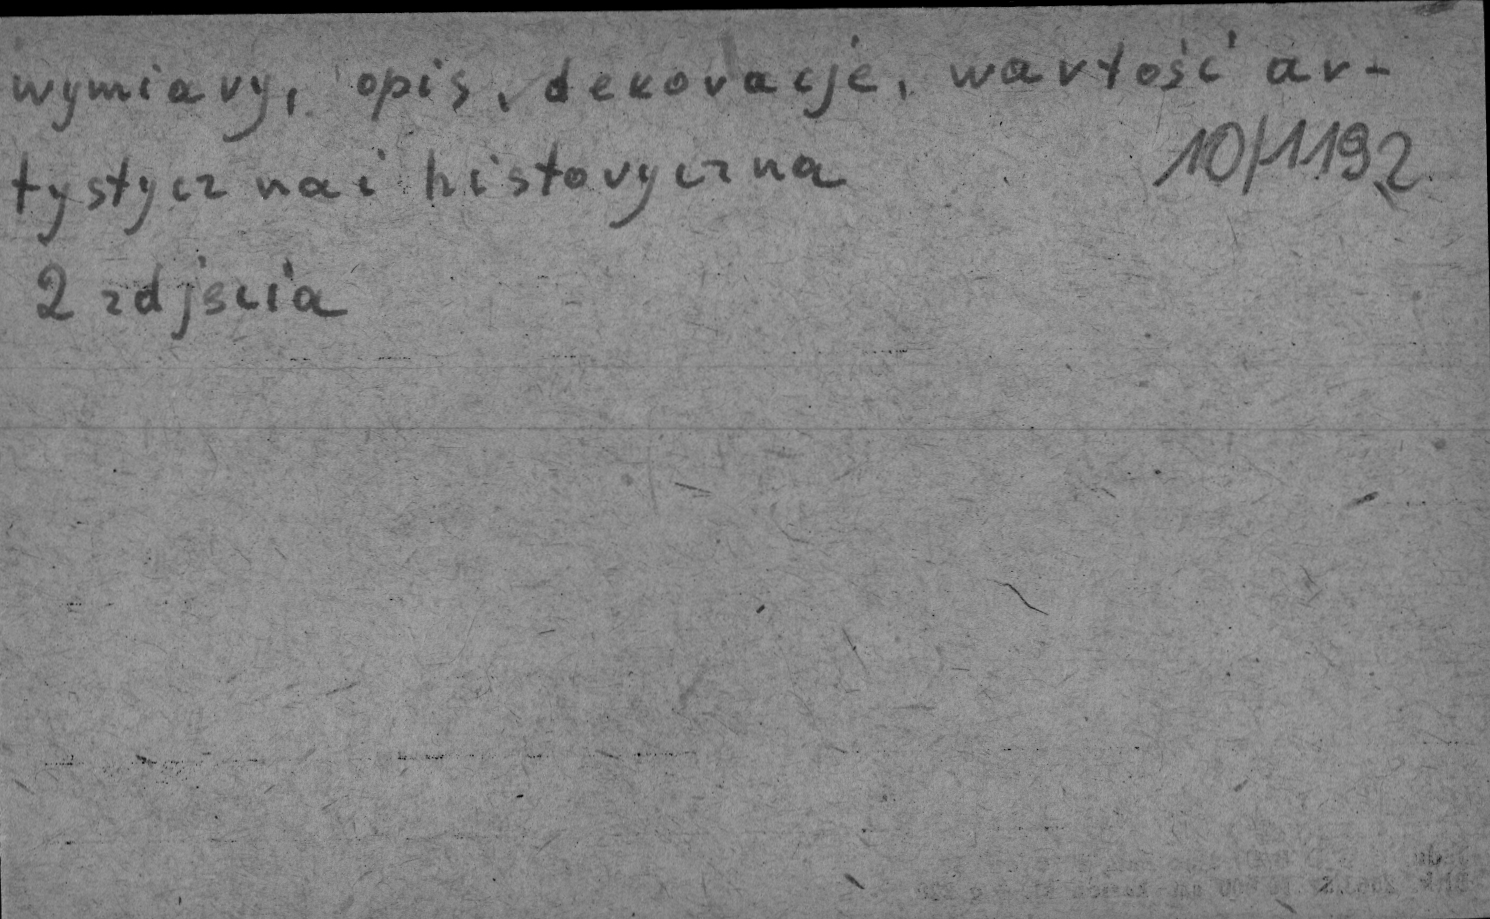 wymiary, opis, dekoracje, wartość ar-
tystyczna i historyczna
10/1192
2 zdjścia